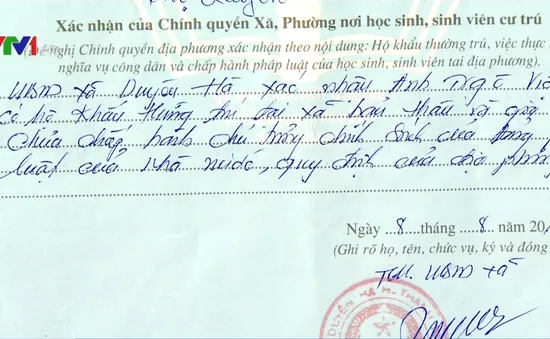 VTV1
Xác nhận của Chính quyền Xã, Phường nơi học sinh, sinh viên cư trú
nghị Chính quyền địa phương xác nhận theo nội dung: Hộ khẩu thường trú, việc thực
nghĩa vụ công dân và chấp hành pháp luật của học sinh, sinh viên tại địa phương).
UBND xã Duyên Hà xác nhận Anh Ngô
Có hộ khẩu thường trú tại xã bản thân và
Chưa chấp hành chủ trương chính sách của
luật của nhà nước, quy định của địa
Ngày 8 tháng 8 năm 20
(Ghi rõ họ, tên, chức vụ, ký và đóng
T.M. UBND xã
DUYÊN HÀ H. THAN